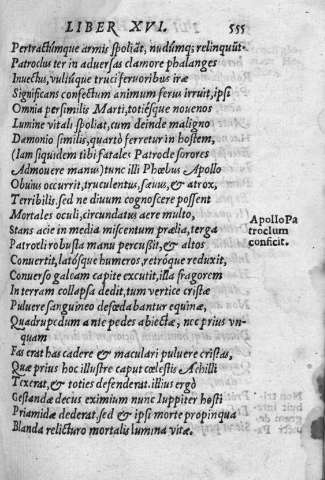 LIBER XVI. 555
Pertractúmque armis spoliāt, nudúmq; relinquūt.
Patroclus ter in aduersas clamore phalanges
Inuectus, vultúque truci feruoribus iræ
Significans confectum animum ferus irruit, ipsi
Omnia persimilis Marti, totiésque nouenos
Lumine vitali spoliat, cum deinde maligno
Dæmonio similis, quartò ferretur in hostem,
(Iam siquidem tibi fatales Patrode sorores
Admouere manus) tunc illi Phœbus Apollo
Obuius occurrit, truculentus, sæuus, & atrox,
Terribilis. sed ne diuum cognoscere possent
Mortales oculi, circundatus aere multo,
Stans acie in media miscentum prælia, terga
Patrocli robusta manu percußit, & altos
Conuertit, latósque humeros, retróque reduxit,
Conuerso galeam capite excutit, illa fragorem
In terram collapsa dedit, tum vertice cristæ
Puluere sanguineo defœdabantur equinæ,
Quadrupedum ante pedes abiectæ, nec prius vn-
quam
Fas erat has cadere & maculari puluere cristas,
Quæ prius hoc illustre caput cœlestis Achilli
Texerat, & toties defenderat. illius ergò
Gestandæ decus eximium nunc Iuppiter hosti
Priamidæ dederat, sed & ipsi morte propinqua
Blanda relicturo mortalis lumina vitæ.
Apollo Pa
troclum
conficit.